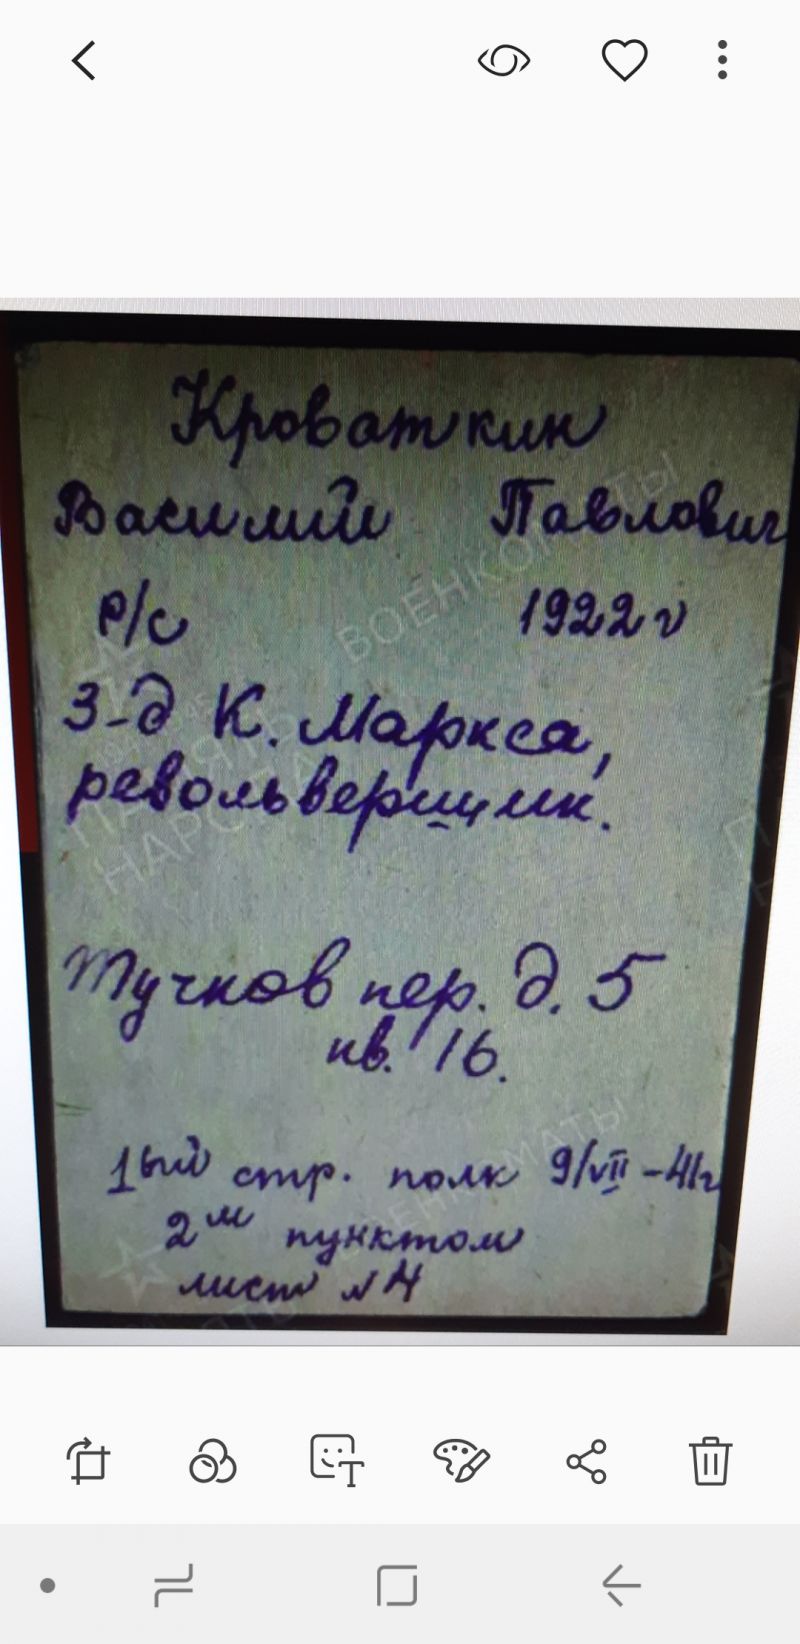 Кроваткин
Василий Павлович
р/с 1922 г
З-д К. Маркса,
револьверщик.
Тучков пер. д. 5
кв. 16.
1ый стр. полк 9/VII-41г
2м пунктом
лист N 4
ВОЕНКОМАТЫ
ПАМЯТЬ
НАРОДА
ВОЕНКОМАТЫ